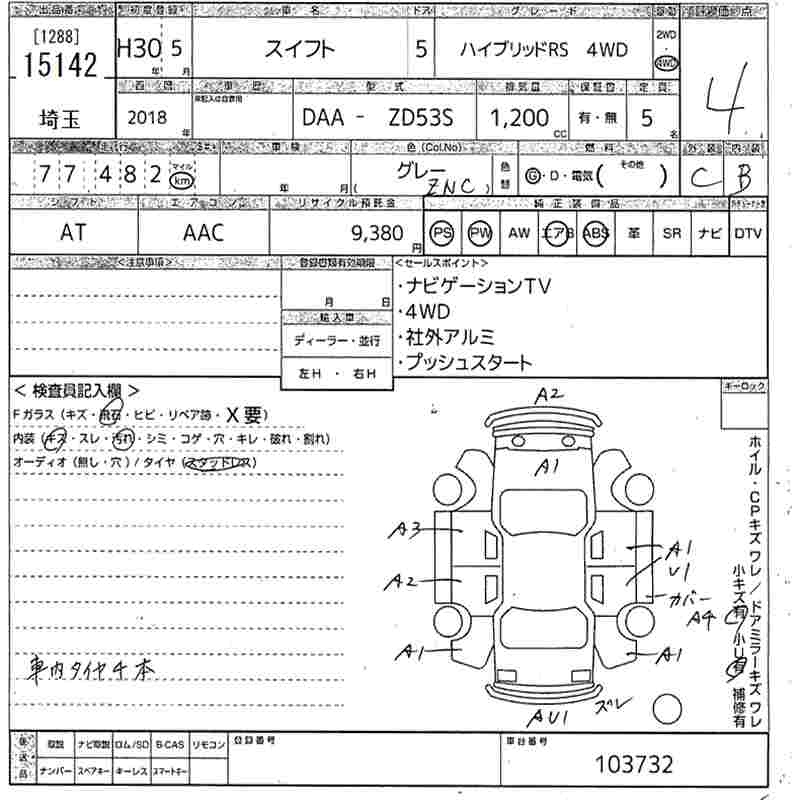 出品番号 初度登録 車名 ドア グレード 駆動 評価点
[1288] 15142 H30年 5月 スイフト 5 ハイブリッドRS 4WD 2WD・4WD 4
西暦 車歴 型式 排気量 保証書 定員
埼玉 2018年 DAA - ZD53S 1,200cc 有・無 5名
走行 車検 色(Col.No) 燃料 外装 内装
77482 マイル km 年 月 グレー (ZNC) 色替 G・D・電気(その他 ) C B
シフト エアコン リサイクル預託金 純正装備品
AT AAC 9,380円 PS PW AW エアB ABS 革 SR ナビ DTV
<注意事項> 登録書類有効期限 <セールスポイント>
月 日
・ナビゲーションTV
・4WD
・社外アルミ
・プッシュスタート
輸入車
ディーラー・並行
左H ・ 右H
< 検査員記入欄 >
Fガラス(キズ・飛石・ヒビ・リペア跡・X要)
内装(キズ・スレ・汚れ・シミ・コゲ・穴・キレ・破れ・割れ)
オーディオ(無し・穴)/タイヤ(スタッドレス)
車内タイヤ4本
キーロック
A2
A1
A3
A1
U1
A2
カバー
A4
A1
A1
AU1
ズレ
ホイル・CPキズワレ/ドアミラーキズワレ
小キズ有 小U有 補修有
後送品 取説 ナビ取説 ロム/SD B-CAS リモコン 登録番号 車台番号
ナンバー スペアキー キーレス スマートキー 103732